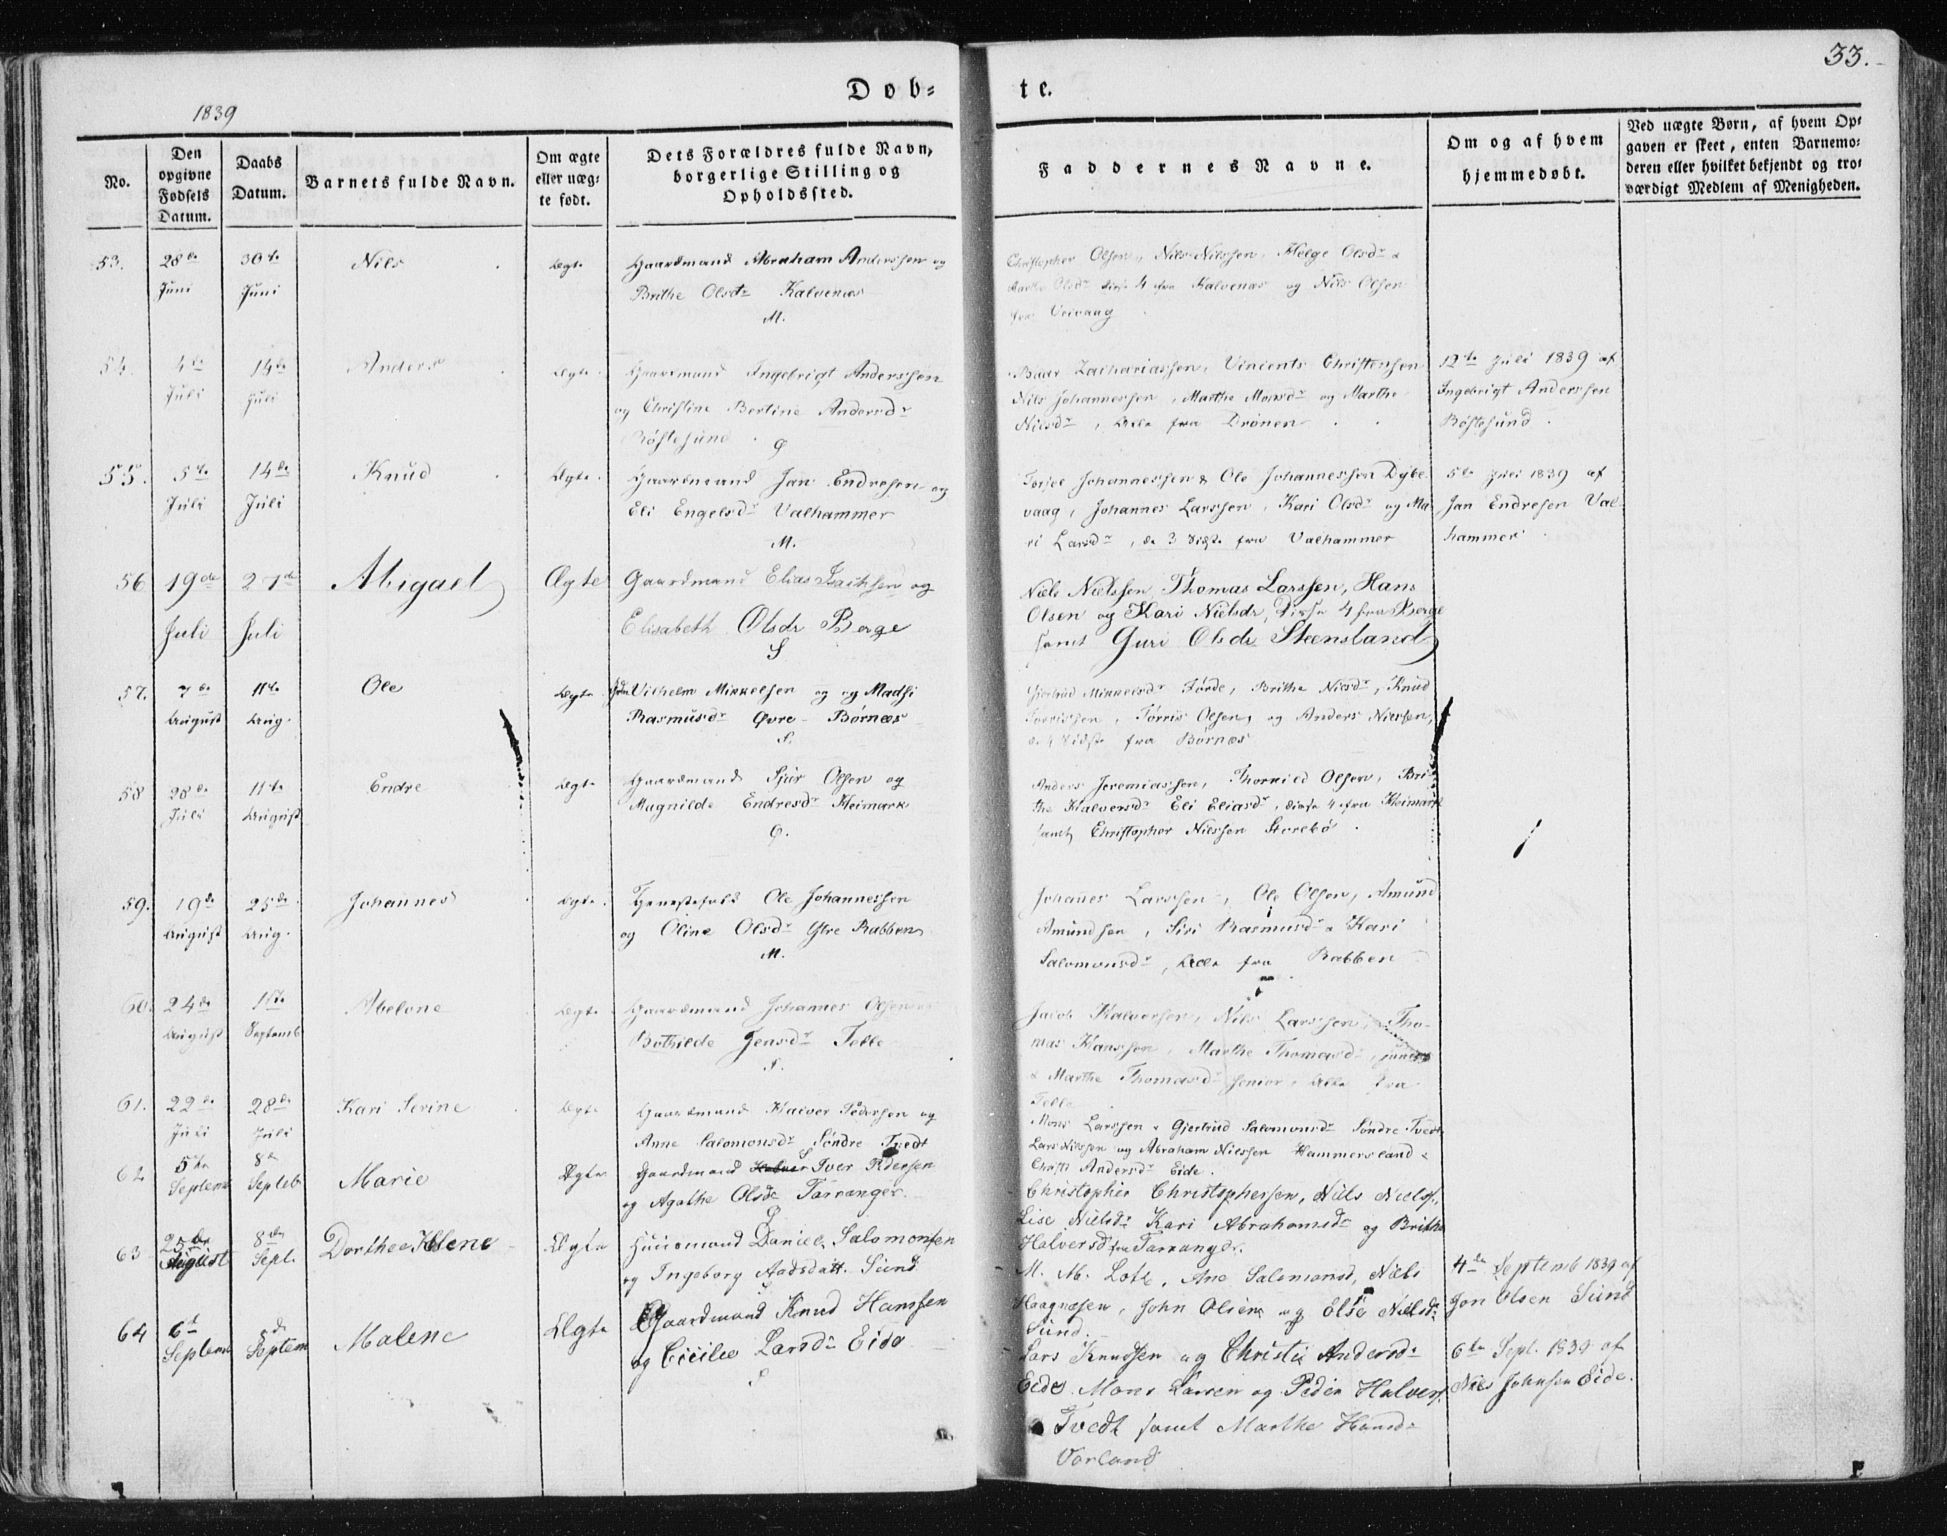 33.
Døb-
te.
1839
No.
Den opgivne Fødsels Datum.
Daabs Datum.
Barnets fulde Navn.
Om ægte eller uægte født.
Dets Forældres fulde Navn, borgerlige Stilling og Opholdssted.
Faddernes Navne.
Om og af hvem hjemmedøbt.
Ved uægte Børn, af hvem Opgaven er skeet, enten Barnemoderen eller hvilket bekjendt og troværdigt Medlem af Menigheden.
53. 28de Juni 30te Juni Nils Ægte
Gaardmand Abraham Anderssen og
Brithe Olsdr Kalvenæs
M.
Christopher Olsen, Nils Nilssen, Helge Olsdr &
Marthe Olsdr disse 4 fra Kalvenæs og Nils Olsen
fra Veivaag
54. 4de Juli 14de Juli Anders Ægte
Gaardmand Ingebrigt Anderssen
og Christine Bertine Andersdr
Bøstesund
Baar Zachariassen, Vincents Christenssen
Nils Johannessen, Marthe Monsdr og Marthe
Nilsdr, Alle fra Drønen
12te Juli 1839 af
Ingebrigt Anderssen
Bøstesund
55. 5te Juli 14de Juli Knud Ægte
Gaardmand Jan Endresen og
Eli Engelsdr Valhammer
M.
Johannessen & Ole Johannessen Dybe
vaag, Johannes Larssen, Kari Olsdr og Ma
ri Larsdr, de 3 sidste fra Valhammer
5te Juli 1839 af
Jan Endresen Val
hammer
56 19de Juli 27de Juli Abigael Ægte
Gaardmand Elias Isaksen og
Elisabeth Olsdr Berge
S
Niels Nielssen, Thomas Larssen, Hans
Olsen og Kari Nielsdr, Disse 4 fra Berge
samt Guri Olsdr Steensland
57. 7de August 11te Aug. Ole Ægte
Vilhelm Mikkelsen og og Madsi
Rasmusdr Øvre Børnæs
S.
Gjertrud Mikkelsdr Førde, Brithe Nilsdr, Knud
Torrissen, Torris Olsen, og Anders Nielsen,
de 4 sidste fra Børnæs
58 28de Juli 11te August Endre Ægte
Gaardmand Sjur Olsen og
Magnilde Endresdr Heimark
Anders Jeremiassen, Thorkild Olsen, Bri
the Halversdr Eli Eliasdr, disse 4 fra Heimark
samt Christopher Nilssen Storebø
59. 19de August 25de Aug. Johannes Ægte
Tjenestefolk Ole Johannessen
og Oline Olsdr Ytre Rabben
M.
Johanes Larssen, Ole Olsen, Amund
Amundsen, Siri Rasmusdr & Kari
Salomonsdr, Alle fra Rabben
60. 24de August 1ste Septemb Abelone Ægte
Gaardmand Johannes Olsen
Bothilde Jensdr Telle
S.
Jacob Halversen, Nils Larssen, Tho
mas Hanssen, Marthe Thomasdr junior
& Marthe Thomasdr senior, Alle fra
Telle
61. 22de Juli 28de Juli Kari Serine Ægte
Gaardmand Halver Pedersen og
Anne Salomonsdr Søndre Tvedt
S
Mons Larssen & Gjertrud Salomonsdr Søndre Tvedt
Lars Nilssen og Abraham Nilssen Hammersland &
Christi Andersdr Eide.
62 5te Septem 8de Septeb Marie Ægte
Gaardmand Iver Pedersen
og Agathe Olsdr Tarranger.
Christopher Christophersen, Niels Nielss.
Lise Nielsdr Kari Abrahamsdr og Brithe
Halversd fra Tarranger.
63 25de August 8de Sept. Dorthea Helene Ægte
Huusmand Daniel Salomonsen
og Ingeborg Aadsdatt. Sund
S
M. M. Lote, Ane Salomonsd, Niels
Haagnæsen, John Olsen og Else Nielsdr
Sund.
4de Septemb 1839 af
Jon Olsen Sund
64 6te Septem 8de Septem Malene Ægte
Gaardmand Knud Hanssen
og Cicilie Larsdr Eide
S
Lars Knudsen og Christie Andersdr
Eide. Mons Larsen og Peder Halvers.
Tvedt samt Marthe Hansdr
Vorland
6te Sept. 1839 af
Niels Johnsen Eide.